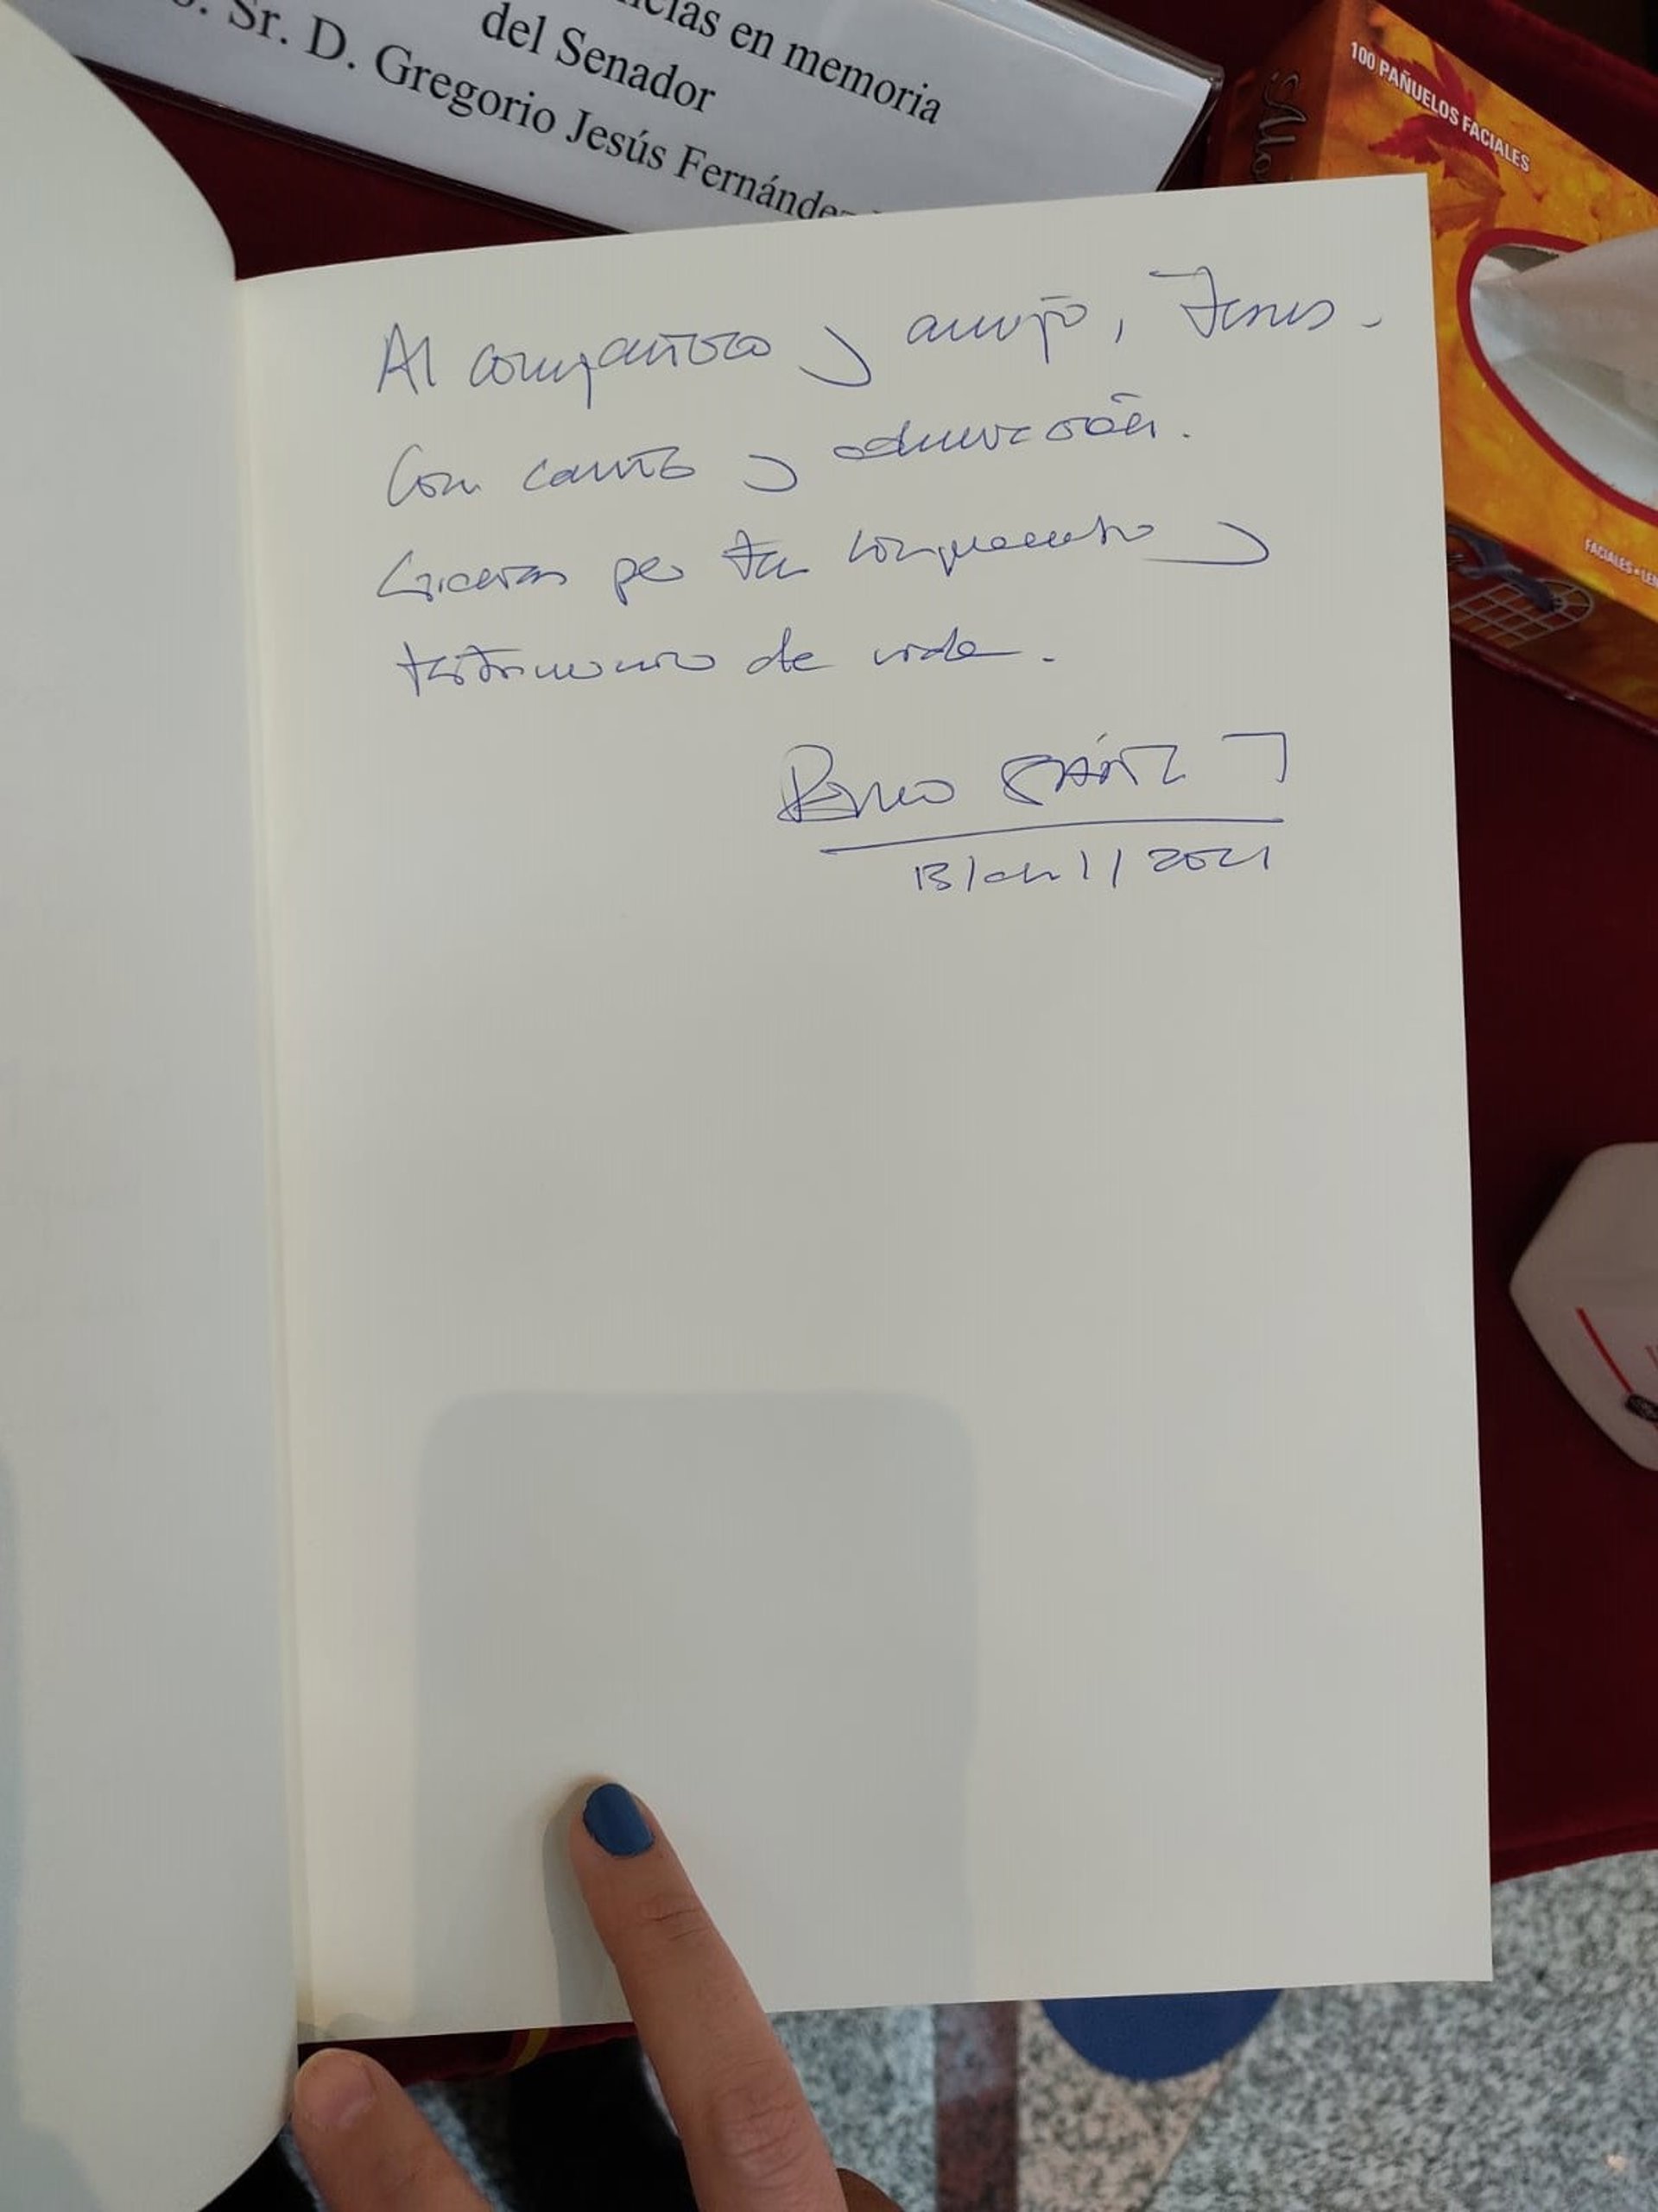 en memoria
del Senador
Sr. D. Gregorio Jesús Fernández
100 PAÑUELOS FACIALES
FACIALES
Al compañero y amigo, Jesús.
Con cariño y admiración.
Gracias por tu compromiso y
testimonio de vida.
SÁNCHEZ
13/abril/2021